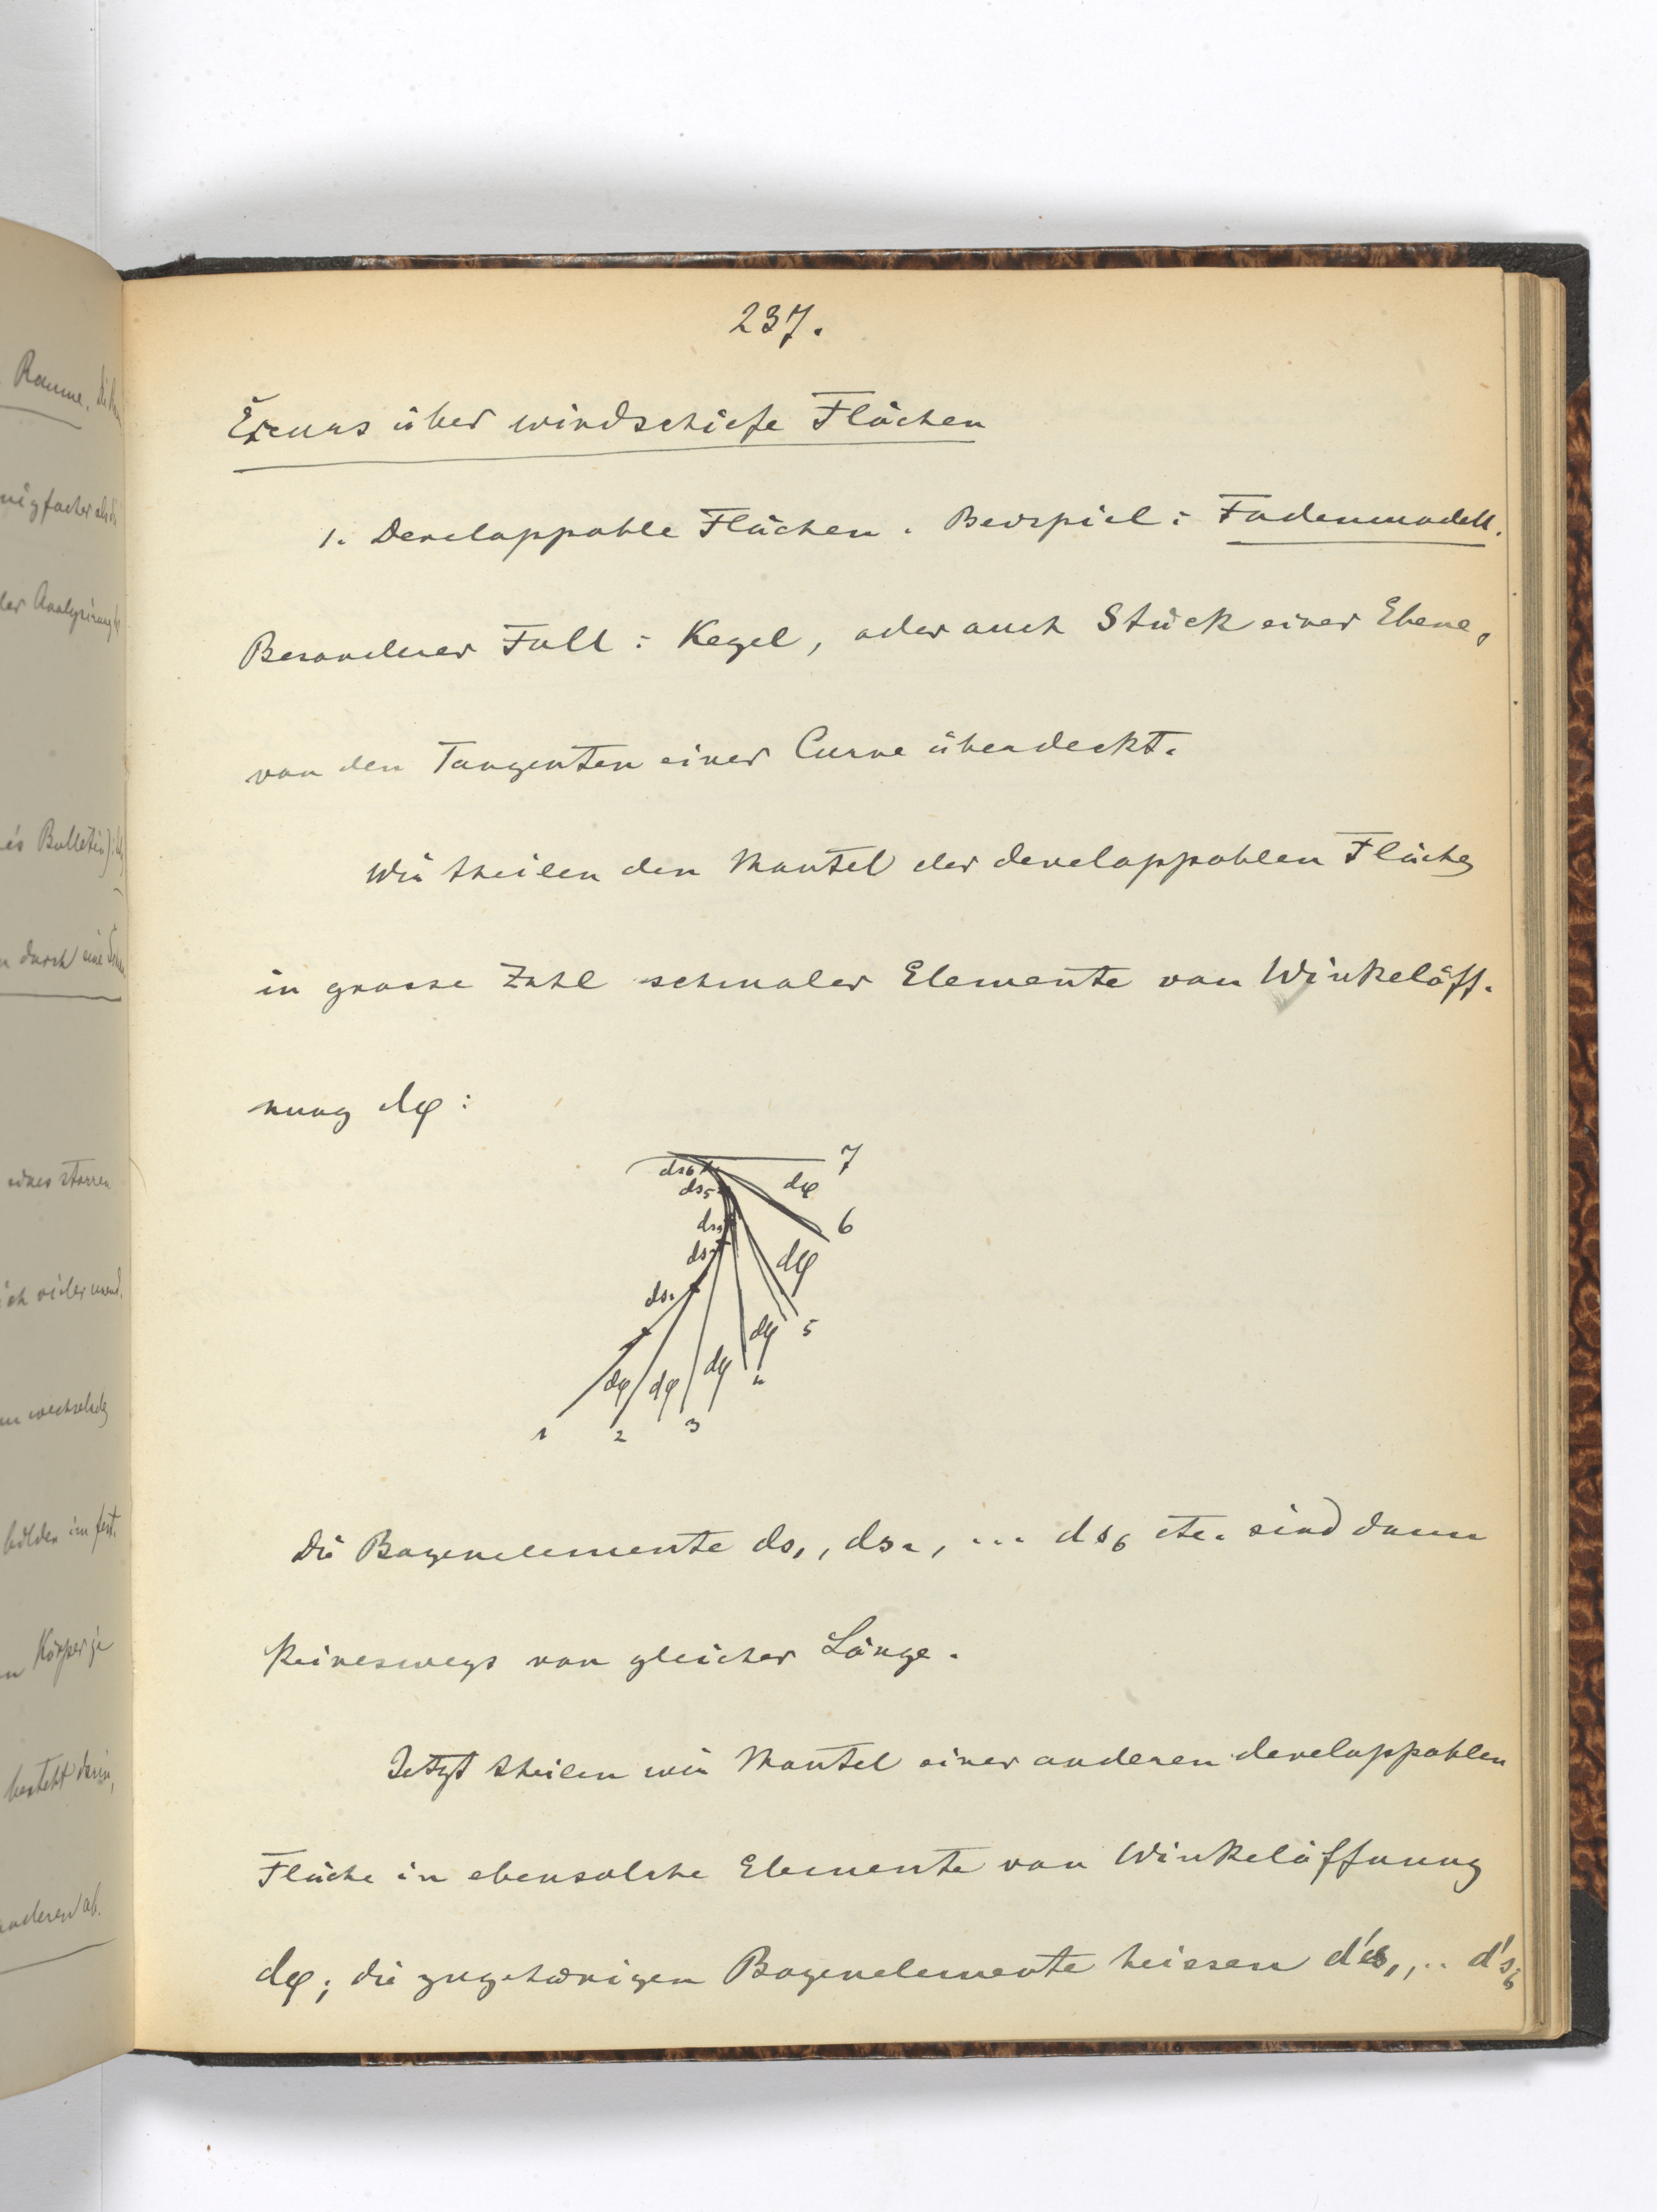 237.
Excurs über windschiefe Flächen
1. Developpable Flächen. Beispiel: Fadenmodell.
Besonderer Fall: Kegel, oder auch Stück einer Ebene,
von den Tangenten einer Curve überdeckt.
Wir theilen den Mantel der developpablen Fläche
in grosse Zahl schmaler Elemente von Winkelöff-
nung dφ:
7
ds6
dφ
ds5
6
dφ
ds1
dφ
5
dφ dφ dφ
4
1 2 3
Die Bogenelemente ds1, ds2, ... ds6 etc. sind dann
keineswegs von gleicher Länge.
Jetzt theilen wir Mantel einer anderen developpablen
Fläche in ebensolche Elemente von Winkelöffnung
dφ; die zugehörigen Bogenelemente heissen d's1,.. d's6
Raume.
durch eine
Bulletin)
eines starren
Körper
besteht darin,
anderen ab.